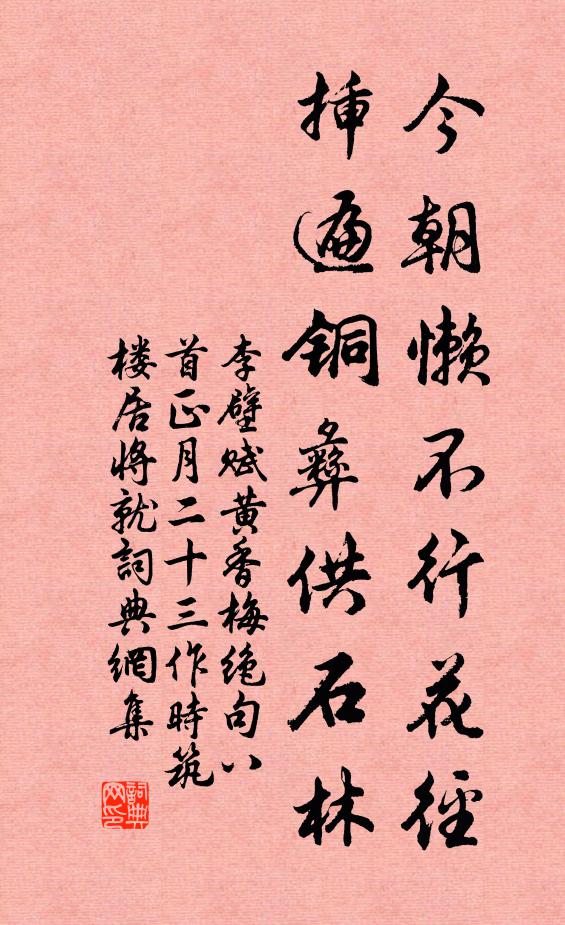 今朝懒不行花径
插遍铜彝供石林
李壁赋黄香梅绝句八
首正月二十三作時筑
楼居将就詞典網集
詞典
网印